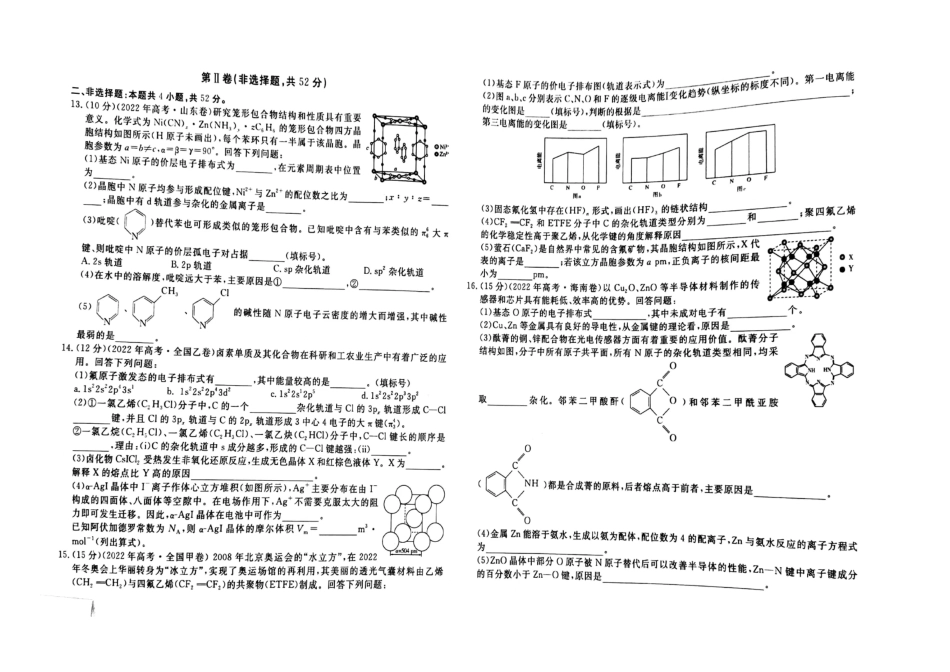 第Ⅱ卷(非选择题,共52分)
二、非选择题:本题共4小题,共52分。
13.(10分)(2022年高考·山东卷)研究笼形包合物结构和性质具有重要
意义。化学式为Ni(CN)x·Zn(NH3)y·zC6H6的笼形包合物四方晶
胞结构如图所示(H原子未画出),每个苯环只有一半属于该晶胞。晶
胞参数为a=b≠c,α=β=γ=90°。回答下列问题:
(1)基态Ni原子的价层电子排布式为________,在元素周期表中位置
为________。
(2)晶胞中N原子均参与形成配位键,Ni2+与Zn2+的配位数之比为________;x:y:z=
________;晶胞中有d轨道参与杂化的金属离子是________。
(3)吡啶( N )替代苯也可形成类似的笼形包合物。已知吡啶中含有与苯类似的π66大π
键、则吡啶中N原子的价层孤电子对占据________(填标号)。
A.2s轨道 B.2p轨道 C.sp杂化轨道 D.sp2杂化轨道
(4)在水中的溶解度,吡啶远大于苯,主要原因是①________,②________。
CH3 Cl
(5) N 、 N 、 N 的碱性随N原子电子云密度的增大而增强,其中碱性
最弱的是________。
14.(12分)(2022年高考·全国乙卷)卤素单质及其化合物在科研和工农业生产中有着广泛的应
用。回答下列问题:
(1)氟原子激发态的电子排布式有________,其中能量较高的是________。(填标号)
a.1s22s22p43s1 b.1s22s22p43d2 c.1s22s12p5 d.1s22s22p33p2
(2)①一氯乙烯(C2H3Cl)分子中,C的一个________杂化轨道与Cl的3px轨道形成C—Cl
________键,并且Cl的3pz轨道与C的2pz轨道形成3中心4电子的大π键(π34)。
②一氯乙烷(C2H5Cl)、一氯乙烯(C2H3Cl)、一氯乙炔(C2HCl)分子中,C—Cl键长的顺序是
________,理由:(ⅰ)C的杂化轨道中s成分越多,形成的C—Cl键越强;(ⅱ)________。
(3)卤化物CsICl2受热发生非氧化还原反应,生成无色晶体X和红棕色液体Y。X为________。
解释X的熔点比Y高的原因________。
(4)α-AgI晶体中I-离子作体心立方堆积(如图所示),Ag+主要分布在由I-
构成的四面体、八面体等空隙中。在电场作用下,Ag+不需要克服太大的阻
力即可发生迁移。因此,α-AgI晶体在电池中可作为________。
已知阿伏加德罗常数为NA,则α-AgI晶体的摩尔体积Vm=________m3·
mol-1(列出算式)。
a=504 pm
15.(15分)(2022年高考·全国甲卷)2008年北京奥运会的“水立方”,在2022
年冬奥会上华丽转身为“冰立方”,实现了奥运场馆的再利用,其美丽的透光气囊材料由乙烯
(CH2=CH2)与四氟乙烯(CF2=CF2)的共聚物(ETFE)制成。回答下列问题:
(1)基态F原子的价电子排布图(轨道表示式)为________。
(2)图a、b、c分别表示C、N、O和F的逐级电离能I变化趋势(纵坐标的标度不同)。第一电离能
的变化图是________(填标号),判断的根据是________;
第三电离能的变化图是________(填标号)。
电离能 C N O F 图a
电离能 C N O F 图b
电离能 C N O F 图c
(3)固态氟化氢中存在(HF)n形式,画出(HF)3的链状结构________。
(4)CF2=CF2和ETFE分子中C的杂化轨道类型分别为________和________;聚四氟乙烯
的化学稳定性高于聚乙烯,从化学键的角度解释原因________。
(5)萤石(CaF2)是自然界中常见的含氟矿物,其晶胞结构如图所示,X代
表的离子是________;若该立方晶胞参数为a pm,正负离子的核间距最
小为________pm。
X
Y
16.(15分)(2022年高考·海南卷)以Cu2O、ZnO等半导体材料制作的传
感器和芯片具有能耗低、效率高的优势。回答问题:
(1)基态O原子的电子排布式________,其中未成对电子有________个。
(2)Cu、Zn等金属具有良好的导电性,从金属键的理论看,原因是________。
(3)酞菁的铜、锌配合物在光电传感器方面有着重要的应用价值。酞菁分子
结构如图,分子中所有原子共平面,所有N原子的杂化轨道类型相同,均采
取________杂化。邻苯二甲酸酐( )和邻苯二甲酰亚胺
( NH )都是合成菁的原料,后者熔点高于前者,主要原因是________。
(4)金属Zn能溶于氨水,生成以氨为配体,配位数为4的配离子,Zn与氨水反应的离子方程式
为________。
(5)ZnO晶体中部分O原子被N原子替代后可以改善半导体的性能,Zn—N键中离子键成分
的百分数小于Zn—O键,原因是________。